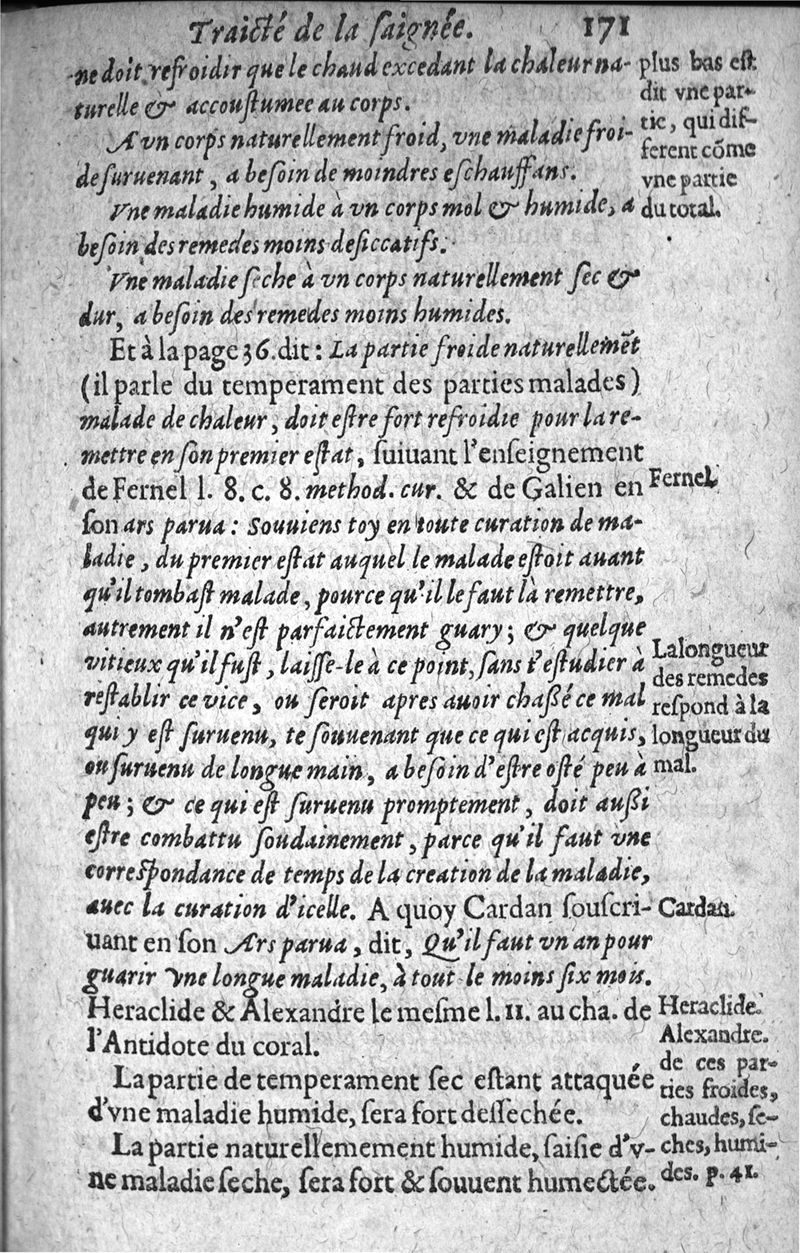 Traicté de la ſaignée. 171
ne doit refroidir que le chaud excedant la chaleur na-
turelle & accouſtumee au corps.
A vn corps naturellement froid, vne maladie froi-
de ſuruenant, a beſoin de moindres eſchauffans.
Vne maladie humide à vn corps mol & humide, a
beſoin des remedes moins deſiccatifs.
Vne maladie ſeche à vn corps naturellement ſec &
dur, a beſoin des remedes moins humides.
Et à la page 36. dit : La partie froide naturellemẽt
(il parle du temperament des parties malades)
malade de chaleur, doit eſtre fort refroidie pour la re-
mettre en ſon premier eſtat, ſuiuant l'enſeignement
de Fernel l. 8. c. 8. method. cur. & de Galien en
ſon ars parua : Souuiens toy en toute curation de ma-
ladie, du premier eſtat auquel le malade eſtoit auant
qu'il tombaſt malade, pource qu'il le faut là remettre,
autrement il n'eſt parfaictement guary ; & quelque
vitieux qu'il fuſt, laiſſe-le à ce point, ſans t'eſtudier à
reſtablir ce vice, ou ſeroit apres auoir chaßé ce mal
qui y eſt ſuruenu, te ſouuenant que ce qui eſt acquis,
ou ſuruenu de longue main, a beſoin d'eſtre oſté peu à
peu ; & ce qui eſt ſuruenu promptement, doit außi
eſtre combattu ſoudainement, parce qu'il faut vne
correſpondance de temps de la creation de la maladie,
auec la curation d'icelle. A quoy Cardan ſouſcri-
uant en ſon Ars parua, dit, Qu'il faut vn an pour
guarir vne longue maladie, à tout le moins ſix mois.
Heraclide & Alexandre le meſme l. 11. au cha. de
l'Antidote du coral.
La partie de temperament ſec eſtant attaquée
d'vne maladie humide, ſera fort deſſechée.
La partie naturellemement humide, ſaiſie d'v-
ne maladie ſeche, ſera fort & ſouuent humectée.
plus bas eſt
dit vne par-
tie, qui dif-
ferent cõme
vne partie
du total.
Fernel.
La longueur
des remedes
reſpond à la
longueur du
mal.
Cardan.
Heraclide.
Alexandre.
de ces par-
ties froides,
chaudes, ſe-
ches, humi-
des. p. 41.